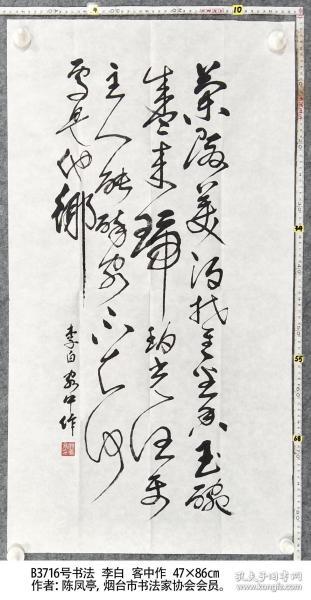 兰陵美酒郁金香玉碗
盛来琥珀光但使
主人能醉客不知何
處是他鄉
李白客中作
B3716号书法 李白 客中作 47×86cm
作者：陈凤亭，烟台市书法家协会会员。